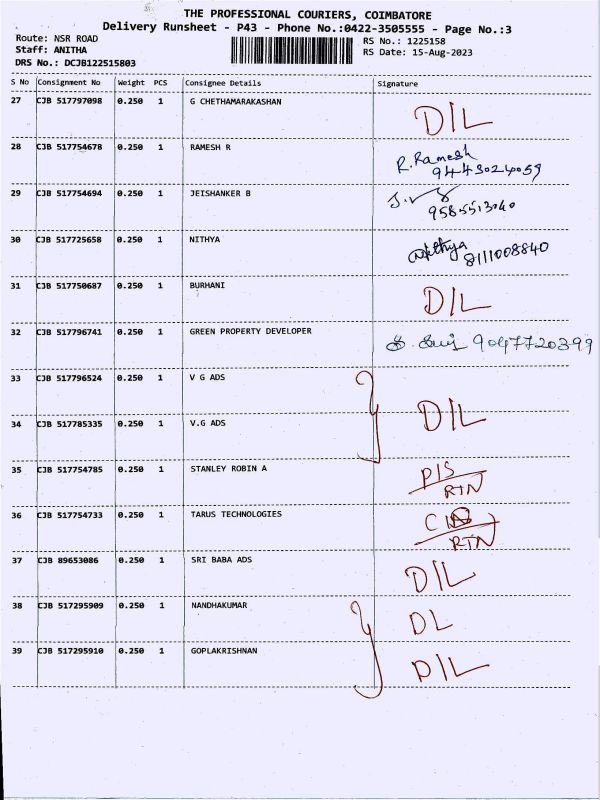 THE PROFESSIONAL COURIERS, COIMBATORE
Delivery Runsheet - P43 - Phone No.:0422-3505555 - Page No.:3
Route: NSR ROAD RS No.: 1225158
Staff: ANITHA RS Date: 15-Aug-2023
DRS No.: DCJB122515803
S No Consignment No Weight PCS Consignee Details Signature
27 CJB 517797098 0.250 1 G CHETHAMARAKASHAN D/L
28 CJB 517754678 0.250 1 RAMESH R R.Ramesh
9443024059
29 CJB 517754694 0.250 1 JEISHANKER B
9585513040
30 CJB 517725658 0.250 1 NITHYA Nithya
8111008840
31 CJB 517750687 0.250 1 BURHANI D/L
32 CJB 517796741 0.250 1 GREEN PROPERTY DEVELOPER 9047720399
33 CJB 517796524 0.250 1 V G ADS
34 CJB 517785335 0.250 1 V.G ADS D/L
35 CJB 517754785 0.250 1 STANLEY ROBIN A P/S
RTN
36 CJB 517754733 0.250 1 TARUS TECHNOLOGIES
RTN
37 CJB 89653086 0.250 1 SRI BABA ADS D/L
38 CJB 517295909 0.250 1 NANDHAKUMAR DL
39 CJB 517295910 0.250 1 GOPLAKRISHNAN D/L